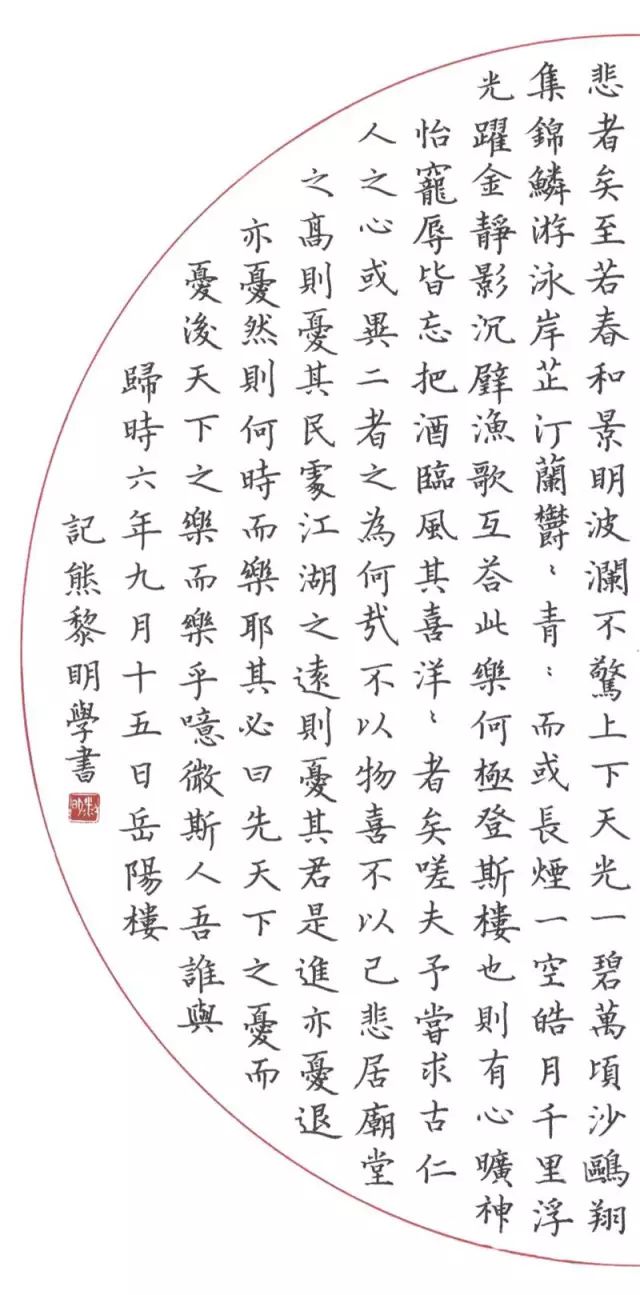 悲者矣至若春和景明波瀾不驚上下天光一碧萬頃沙鷗翔
集錦鱗游泳岸芷汀蘭欝〻青〻而或長煙一空皓月千里浮
光躍金靜影沉璧漁歌互荅此樂何極登斯樓也則有心曠神
怡寵辱皆忘把酒臨風其喜洋〻者矣嗟夫予嘗求古仁
人之心或異二者之為何㢤不以物喜不以己悲居廟堂
之髙則憂其民處江湖之遠則憂其君是進亦憂退
亦憂然則何時而樂耶其必曰先天下之憂而
憂後天下之樂而樂乎噫微斯人吾誰與
歸時六年九月十五日岳陽樓
記熊黎明學書